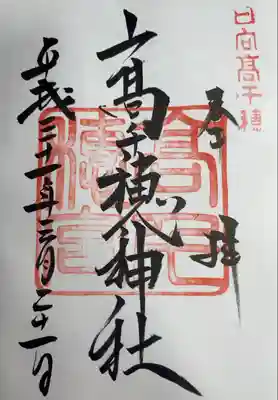 日向高千穂
奉拝
高千穂神社
平成三十一年三月二十一日